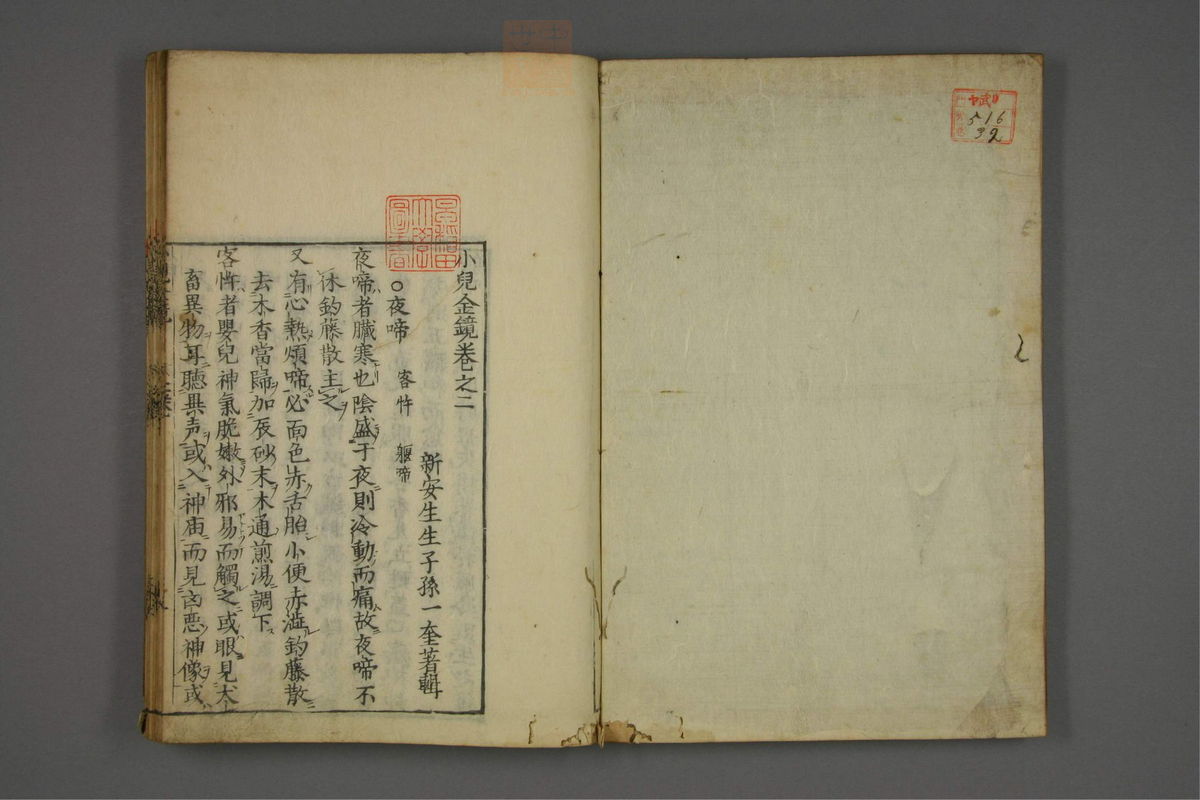 516
32
小兒金鏡巻之二
新安生生子孫一奎著輯
○夜啼 客忤 軀啼
夜啼者臓寒也陰盛于夜則冷動而痛故夜啼不
休鈎藤散主之
又有心熱煩啼必面色赤舌胎小便赤澁鈎藤散
去木香當歸加辰砂末木通煎湯調下
客忤者嬰兒神氣脆嫩外邪易而觸之或眼見大
畜異物耳聽異声或入神庙而見凶悪神像或